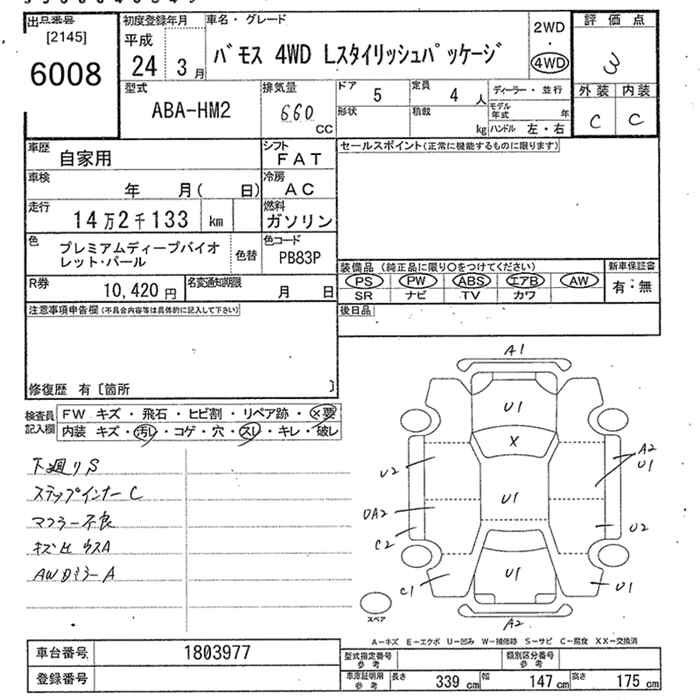 出品番号
[2145]
6008
初度登録年月
平成
24 3月
車名・グレード
バモス 4WD Lスタイリッシュパッケージ
2WD
・
4WD
評価点
3
外装 内装
C C
型式
ABA-HM2
排気量
660
CC
ドア 5
定員 4 人
形状
積載 kg
ディーラー・並行
モデル年式 年
ハンドル 左・右
車歴 自家用
シフト FAT
車検 年 月( 日)
冷房 AC
走行 14万2千133 km
燃料 ガソリン
色 プレミアムディープバイオ
レット・パール
色替
色コード PB83P
R券 10,420 円
名変通知期限 月 日
セールスポイント(正常に機能するものに限ります)
装備品 (純正品に限り○をつけてください)
PS PW ABS エアB AW
SR ナビ TV カワ
新車保証書
有:無
後日品
注意事項申告欄(不具合内容等は具体的に記入して下さい)
修復歴 有 [箇所 ]
検査員
記入欄
FW キズ・飛石・ヒビ割・リペア跡・×要
内装 キズ・汚レ・コゲ・穴・スレ・キレ・破レ
下廻りS
ステップインナーC
マフラー不良
AWDミラーA
A1
U1
X
U2
A2
U1
U1
DA2
C2
U2
C1
U1
U1
A2
スペア
A-キズ E-エクボ U-凹み W-補修跡 S-サビ C-腐食 XX-交換済
車台番号 1803977
登録番号
型式指定番号
参考
類別区分番号
参考
車庫証明用
参考
長さ 339 cm 幅 147 cm 高さ 175 cm